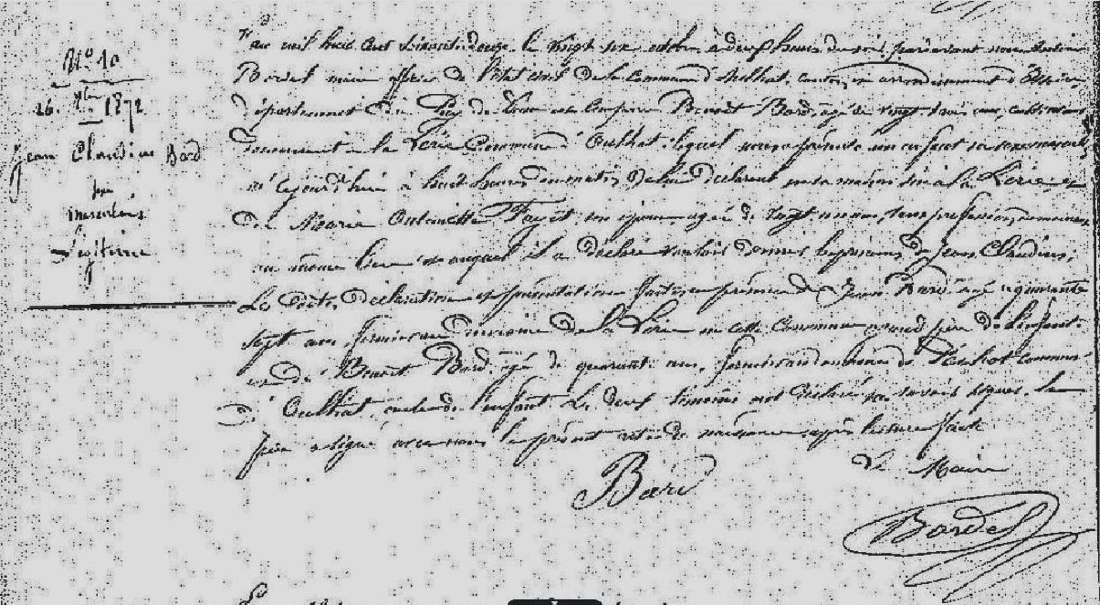 N° 10
26 8bre 1872
Jean Claudius Bard
sexe
masculin
Légitime
L'an mil huit cent soixante douze le vingt six octobre à deux heures du soir pardevant nous
maire officier de l'état civil de la commune d'Aulhat, canton, arrondissement d'Issoire,
département du Puy de Dôme est comparu Benoît Bard, âgé de vingt trois ans, cultivateur
demeurant à la commune d'Aulhat, lequel nous a présenté un enfant du sexe masculin,
né cejourd'hui à huit heures du matin, de lui déclarant en sa maison sise à la et
de Marie Antoinette Fayet son épouse agée de vingt un ans, sans profession, demeurant
au même lieu et auquel il a déclaré vouloir donner les prénoms de Jean Claudius,
Les dites déclaration et présentation faites en présence de Jean âgé quarante
sept ans, de la en cette Commune grand père de l'enfant
et de Benoit Bard, âgé de quarante ans, demeurant commune
d'Aulhat, oncle de l'enfant. Les deux témoins ont déclaré ne savoir signer, le
père a signé avec nous le présent acte de naissance après lecture faite
Bard
Le Maire
Bardel